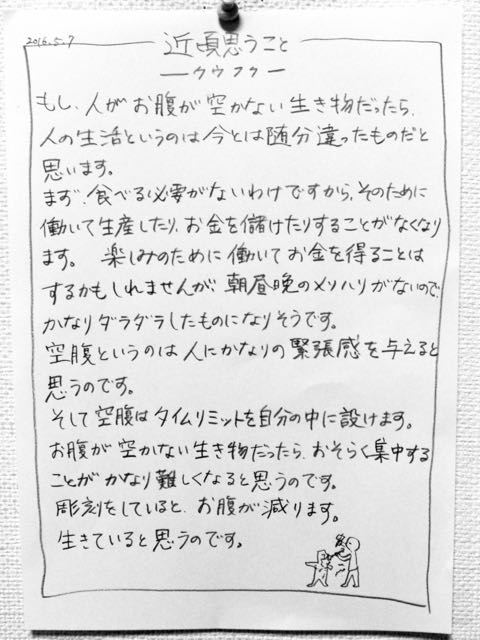 2016.5.7
近頃思うこと
ークウフクー
もし、人がお腹が空かない生き物だったら、
人の生活というのは今とは随分違ったものだと
思います。
まず、食べる必要がないわけですから、そのために
働いて生産したり、お金を儲けたりすることがなくなり
ます。 楽しみのために働いてお金を得ることは
するかもしれませんが、朝昼晩のメリハリがないので、
かなりダラダラしたものになりそうです。
空腹というのは人にかなりの緊張感を与えると
思うのです。
そして空腹はタイムリミットを自分の中に設けます。
お腹が空かない生き物だったら、おそらく集中する
ことがかなり難しくなると思うのです。
彫刻をしていると、お腹が減ります。
生きていると思うのです。